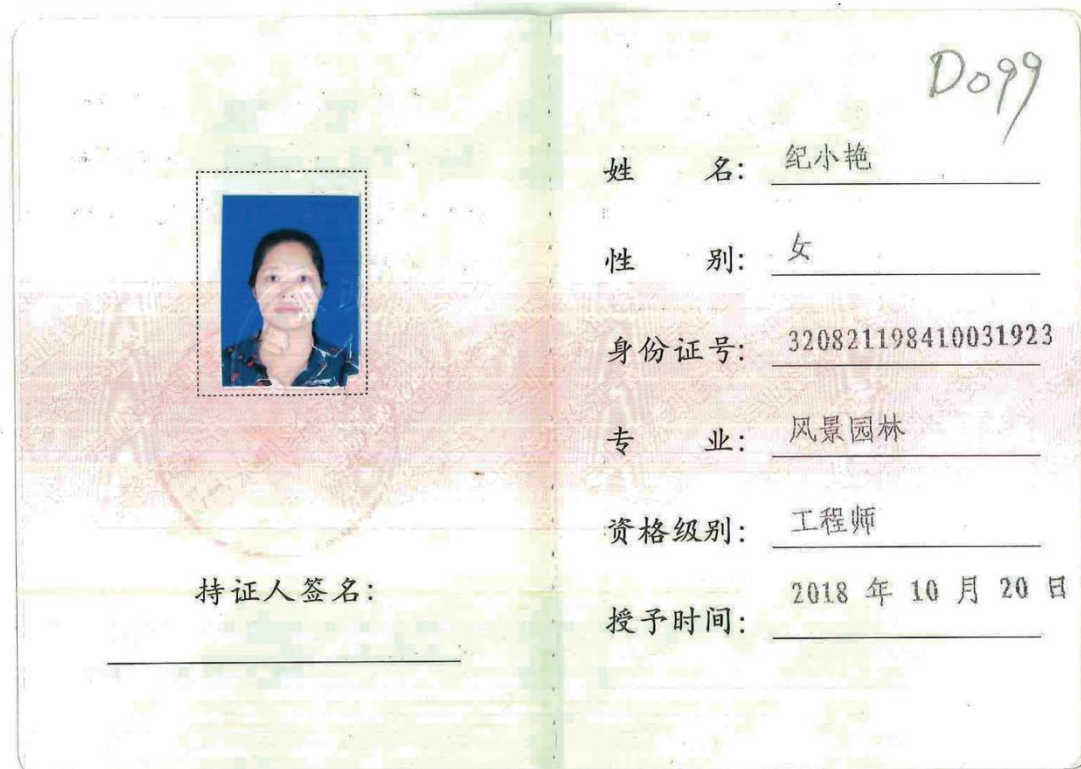 D099
姓 名: 纪小艳
性 别: 女
身份证号: 320821198410031923
专 业: 风景园林
资格级别: 工程师
授予时间: 2018 年 10 月 20 日
持证人签名: